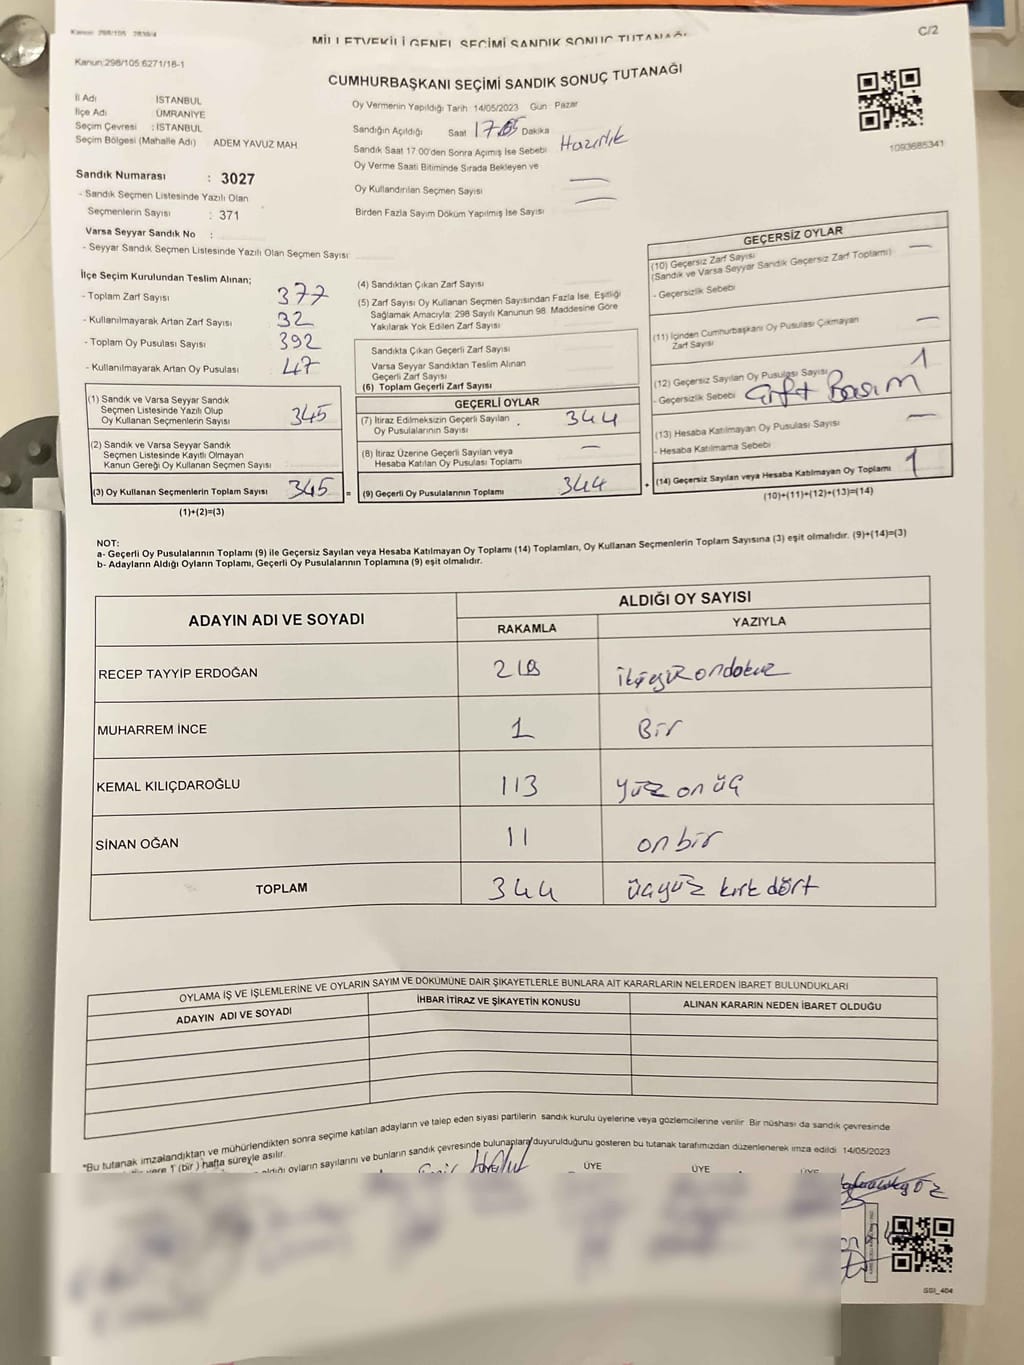 Kanun: 298/105 2839/4
MİLLETVEKİLİ GENEL SEÇİMİ SANDIK SONUÇ TUTANAĞI
C/2
Kanun:298/105:6271/18-1
CUMHURBAŞKANI SEÇİMİ SANDIK SONUÇ TUTANAĞI
İl Adı İSTANBUL
İlçe Adı ÜMRANİYE
Seçim Çevresi : İSTANBUL
Seçim Bölgesi (Mahalle Adı) ADEM YAVUZ MAH.
Oy Vermenin Yapıldığı Tarih 14/05/2023 Gün Pazar
Sandığın Açıldığı Saat 17.05 Dakika
Sandık Saat 17:00'den Sonra Açımış İse Sebebi Hazırlık
Oy Verme Saati Bitiminde Sırada Bekleyen ve
Oy Kullandırılan Seçmen Sayısı —
Birden Fazla Sayım Döküm Yapılmış İse Sayısı —
1093685341
Sandık Numarası : 3027
- Sandık Seçmen Listesinde Yazılı Olan
Seçmenlerin Sayısı : 371
Varsa Seyyar Sandık No :
- Seyyar Sandık Seçmen Listesinde Yazılı Olan Seçmen Sayısı
İlçe Seçim Kurulundan Teslim Alınan;
- Toplam Zarf Sayısı 377
- Kullanılmayarak Artan Zarf Sayısı 32
- Toplam Oy Pusulası Sayısı 392
- Kullanılmayarak Artan Oy Pusulası 47
(1) Sandık ve Varsa Seyyar Sandık
Seçmen Listesinde Yazılı Olup
Oy Kullanan Seçmenlerin Sayısı 345
(2) Sandık ve Varsa Seyyar Sandık
Seçmen Listesinde Kayıtlı Olmayan
Kanun Gereği Oy Kullanan Seçmen Sayısı
(3) Oy Kullanan Seçmenlerin Toplam Sayısı 345 =
(1)+(2)=(3)
(4) Sandıktan Çıkan Zarf Sayısı
(5) Zarf Sayısı Oy Kullanan Seçmen Sayısından Fazla İse, Eşitliği
Sağlamak Amacıyla; 298 Sayılı Kanunun 98. Maddesine Göre
Yakılarak Yok Edilen Zarf Sayısı
Sandıkta Çıkan Geçerli Zarf Sayısı
Varsa Seyyar Sandıktan Teslim Alınan
Geçerli Zarf Sayısı
(6) Toplam Geçerli Zarf Sayısı
GEÇERLİ OYLAR
(7) İtiraz Edilmeksizin Geçerli Sayılan
Oy Pusulalarının Sayısı 344
(8) İtiraz Üzerine Geçerli Sayılan veya
Hesaba Katılan Oy Pusulası Toplamı —
(9) Geçerli Oy Pusulalarının Toplamı 344 +
GEÇERSİZ OYLAR
(10) Geçersiz Zarf Sayısı —
(Sandık ve Varsa Seyyar Sandık Geçersiz Zarf Toplamı)
- Geçersizlik Sebebi
(11) İçinden Cumhurbaşkanı Oy Pusulası Çıkmayan
Zarf Sayısı —
(12) Geçersiz Sayılan Oy Pusulası Sayısı 1
- Geçersizlik Sebebi Çift Basım
(13) Hesaba Katılmayan Oy Pusulası Sayısı —
- Hesaba Katılmama Sebebi
(14) Geçersiz Sayılan veya Hesaba Katılmayan Oy Toplamı 1
(10)+(11)+(12)+(13)=(14)
NOT:
a- Geçerli Oy Pusulalarının Toplamı (9) ile Geçersiz Sayılan veya Hesaba Katılmayan Oy Toplamı (14) Toplamları, Oy Kullanan Seçmenlerin Toplam Sayısına (3) eşit olmalıdır. (9)+(14)=(3)
b- Adayların Aldığı Oyların Toplamı, Geçerli Oy Pusulalarının Toplamına (9) eşit olmalıdır.
ADAYIN ADI VE SOYADI
ALDIĞI OY SAYISI
RAKAMLA YAZIYLA
RECEP TAYYİP ERDOĞAN 219 ikiyüz ondokuz
MUHARREM İNCE 1 Bir
KEMAL KILIÇDAROĞLU 113 yüz on üç
SİNAN OĞAN 11 on bir
TOPLAM 344 üçyüz kırk dört
OYLAMA İŞ VE İŞLEMLERİNE VE OYLARIN SAYIM VE DÖKÜMÜNE DAİR ŞİKAYETLERLE BUNLARA AİT KARARLARIN NELERDEN İBARET BULUNDUKLARI
ADAYIN ADI VE SOYADI İHBAR İTİRAZ VE ŞİKAYETİN KONUSU ALINAN KARARIN NEDEN İBARET OLDUĞU
*Bu tutanak imzalandıktan ve mühürlendikten sonra seçime katılan adayların ve talep eden siyasi partilerin sandık kurulu üyelerine veya gözlemcilerine verilir. Bir nüshası da sandık çevresinde
yere 1 (bir) hafta süreyle asılır.
oyların sayılarını ve bunların sandık çevresinde bulunanlara duyurulduğunu gösteren bu tutanak tarafımızdan düzenlenerek imza edildi 14/05/2023
ÜYE ÜYE ÜYE
GSI_404